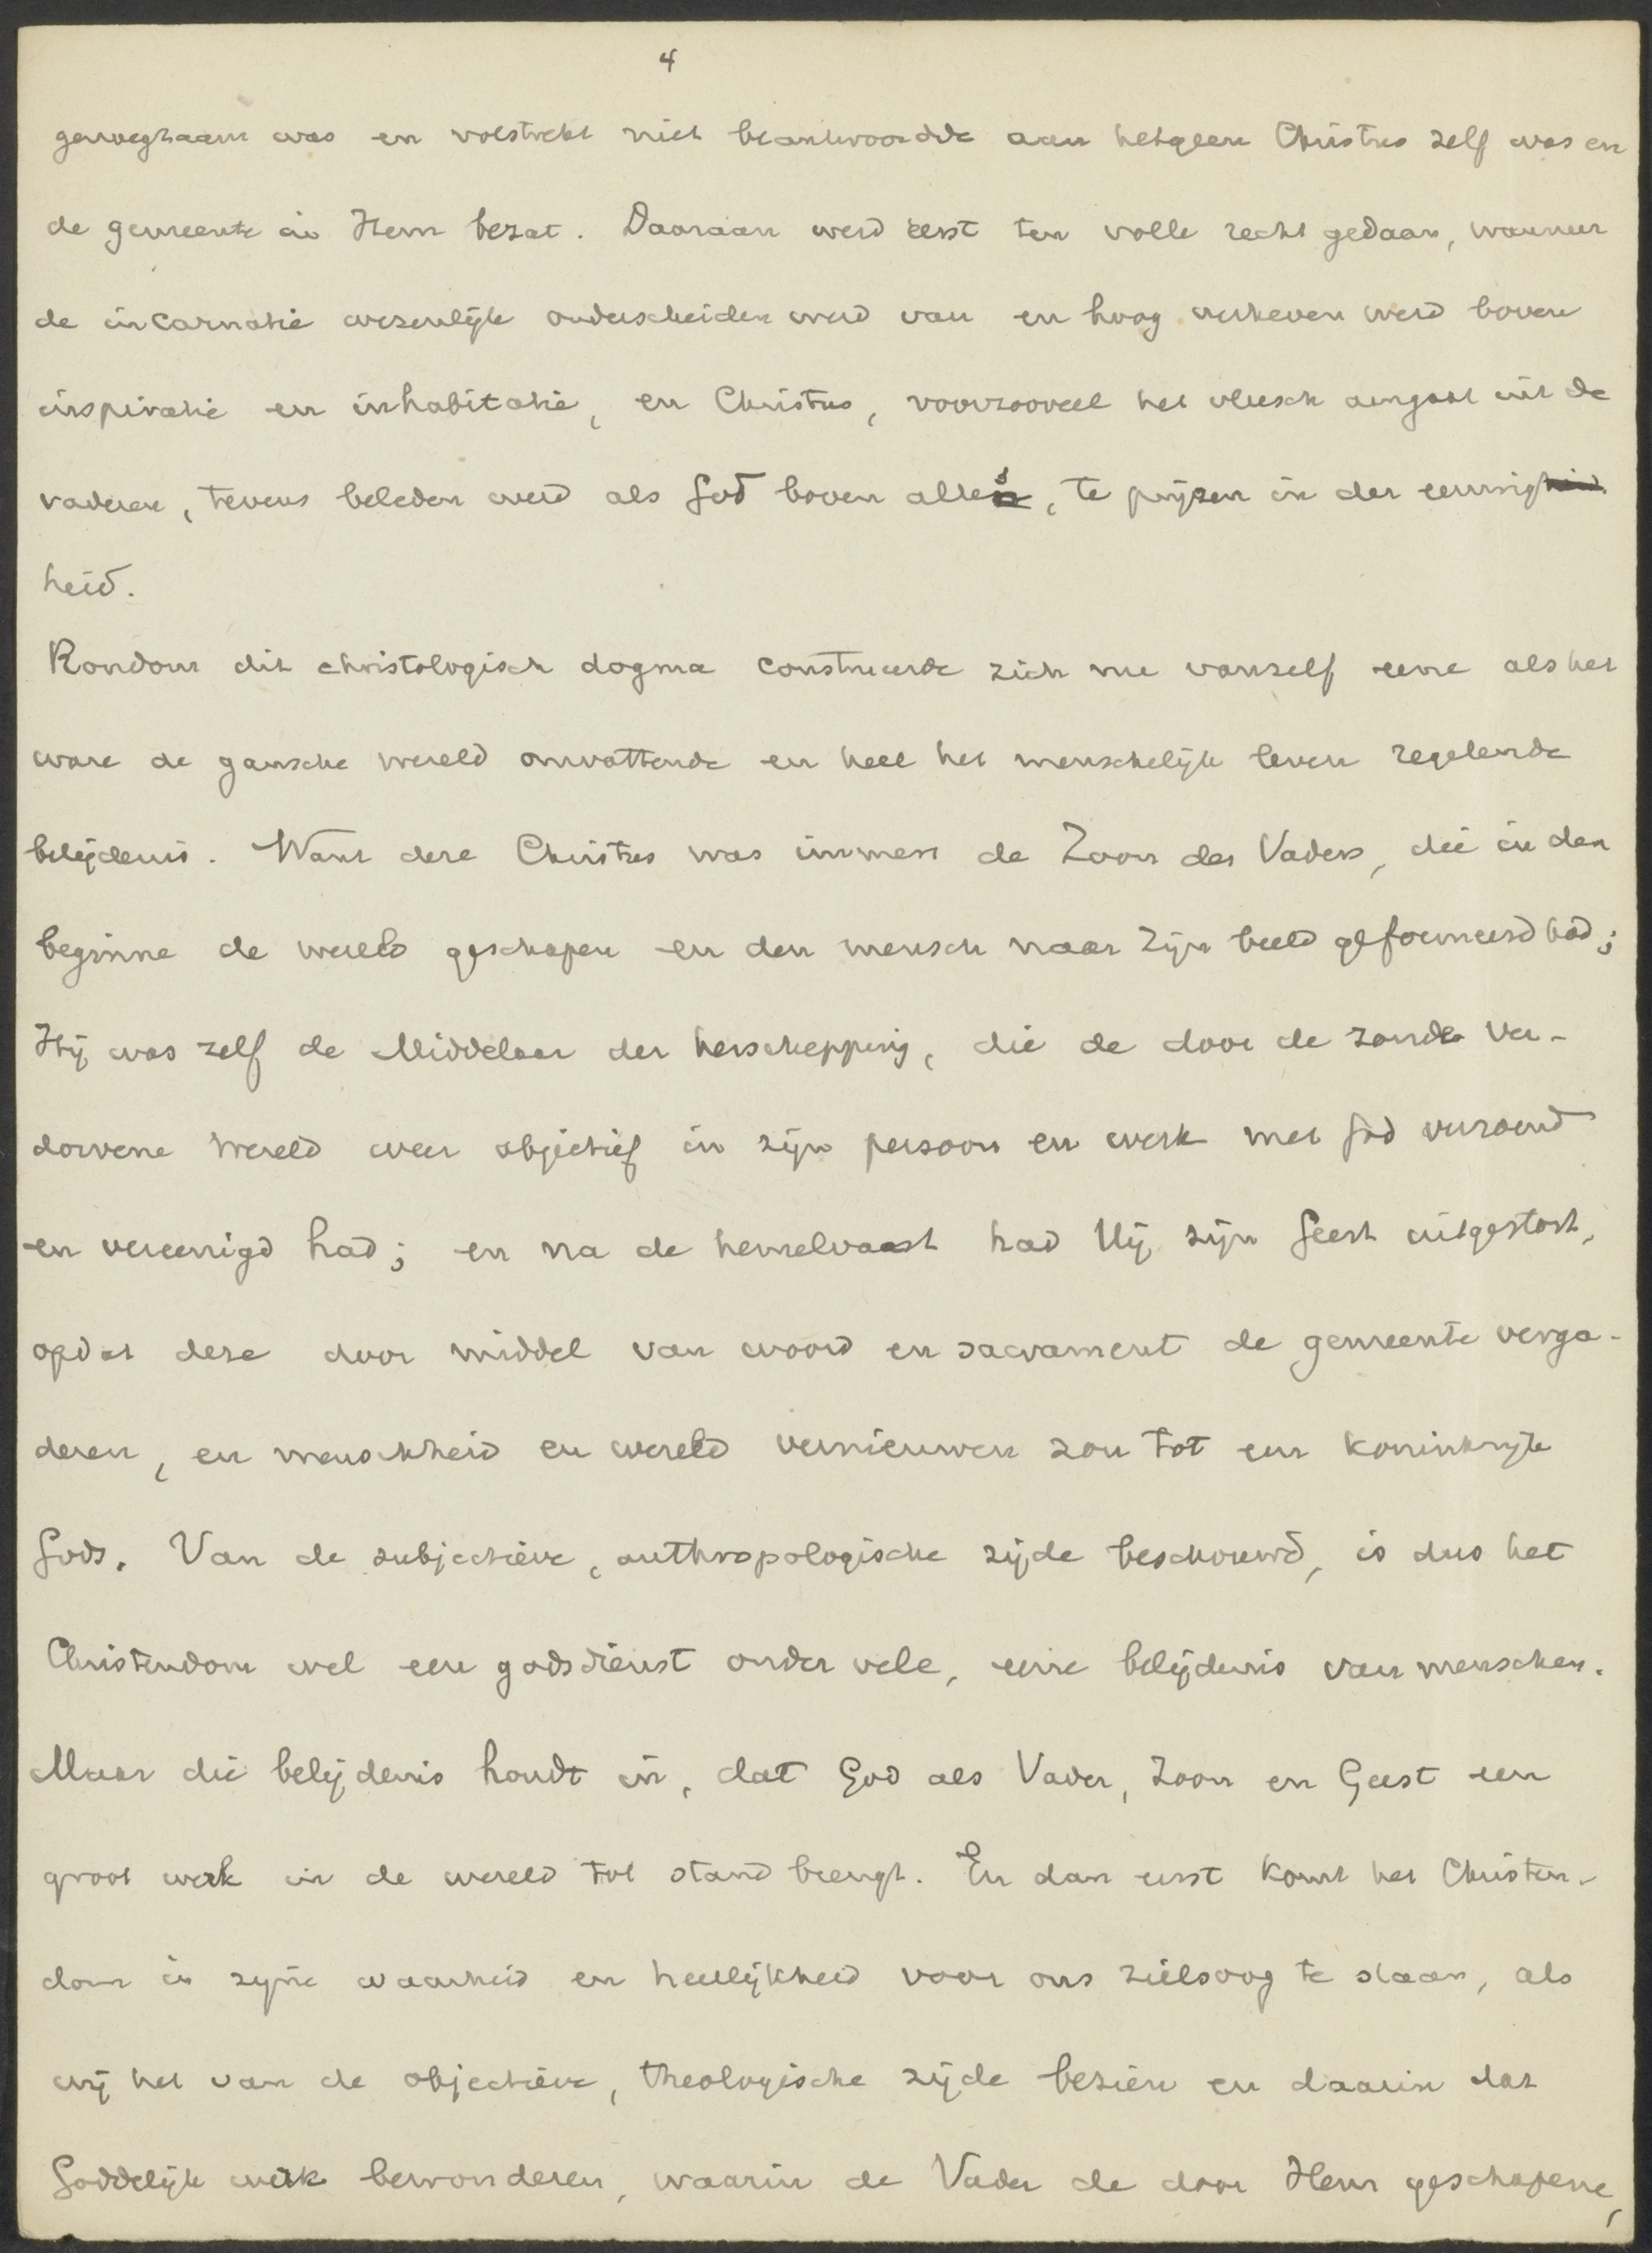 4
genoegzaam was en volstrekt niet beantwoordde aan hetgeen Christus zelf was en
de gemeente in Hem bezat. Daaraan werd eerst ten volle recht gedaan, wanneer
de incarnatie wezenlijk onderscheiden werd van en hoog verheven werd boven
inspiratie en inhabitatie, en Christus, voorzooveel het vleesch aangaat uit de
vaderen, tevens beleden werd als God boven alles, te prijzen in der eeuwig
heid.
Rondom dit christologisch dogma construeerde zich nu vanzelf eene als het
ware de gansche wereld omvattende en heel het menschelijk leven regelende
belijdenis. Want deze Christus was immers de Zoon des Vaders, die in den
beginne de wereld geschapen en den mensch naar Zijn beeld geformeerd had;
Hij was zelf de Middelaar der herschepping, die de door de zonde ver-
dorvene wereld weer objectief in zijn persoon en werk met God verzoend
en vereenigd had; en na de hemelvaart had Hij zijn Geest uitgestort,
opdat deze door middel van woord en sacrament de gemeente verga-
deren, en menschheid en wereld vernieuwen zou tot een koninkrijk
Gods. Van de subjectieve, anthropologische zijde beschouwd, is dus het
Christendom wel een godsdienst onder vele, eene belijdenis van menschen.
Maar die belijdenis houdt in, dat God als Vader, Zoon en Geest een
groot werk in de wereld tot stand brengt. En dan eerst komt het Christen-
dom in zijne waarheid en heerlijkheid voor ons zielsoog te staan, als
wij het van de objectieve, theologische zijde bezien en daarin dat
Goddelijk werk bewonderen, waarin de Vader de door Hem geschapene,